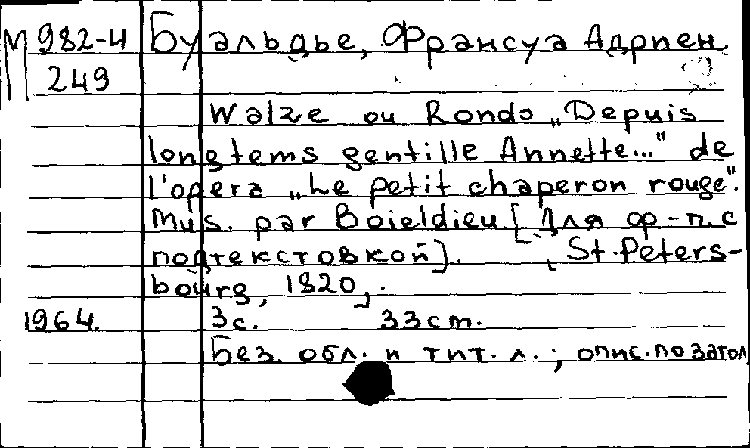 М 982-4 Буальдье, Франсуа Адриен
249
Walze ou Rondo „Depuis
longtems gentille Annette..." de
l'opera „Le petit chaperon rouge".
Mus. par Boieldieu [Для ф-п. с
подтекстовкой]. , St. Peters-
bourg, 1820,.
1964. 3с. 33 cm.
Без. обл. и тит. л.; опис. по загол